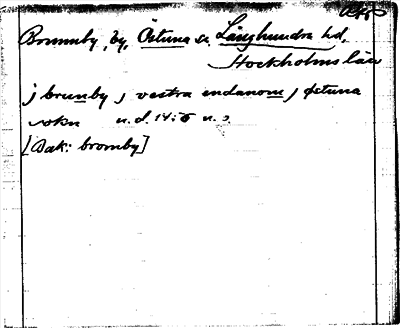 Brumby, by, Östuna sn Långhundra hd,
Stockholms län
j brumby j vestra endanom j østuna
sokn u.d. 14:5 u. s
[Bak: bromby]